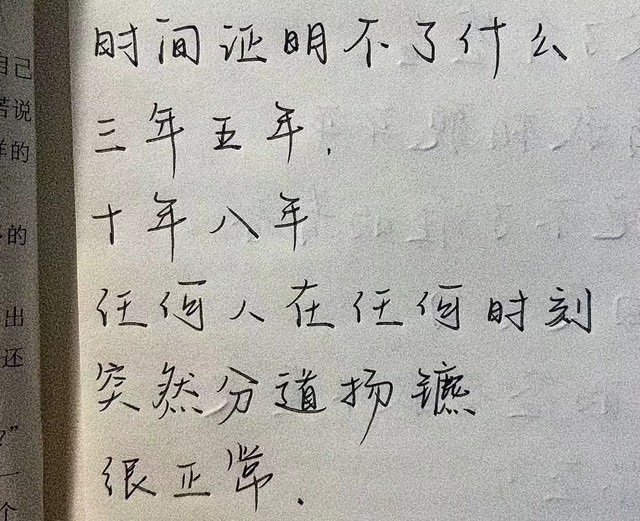 时间证明不了什么
三年五年，
十年八年
任何人在任何时刻
突然分道扬镳
很正常.
自己
若说
样的
的
出
还
?"
一
个